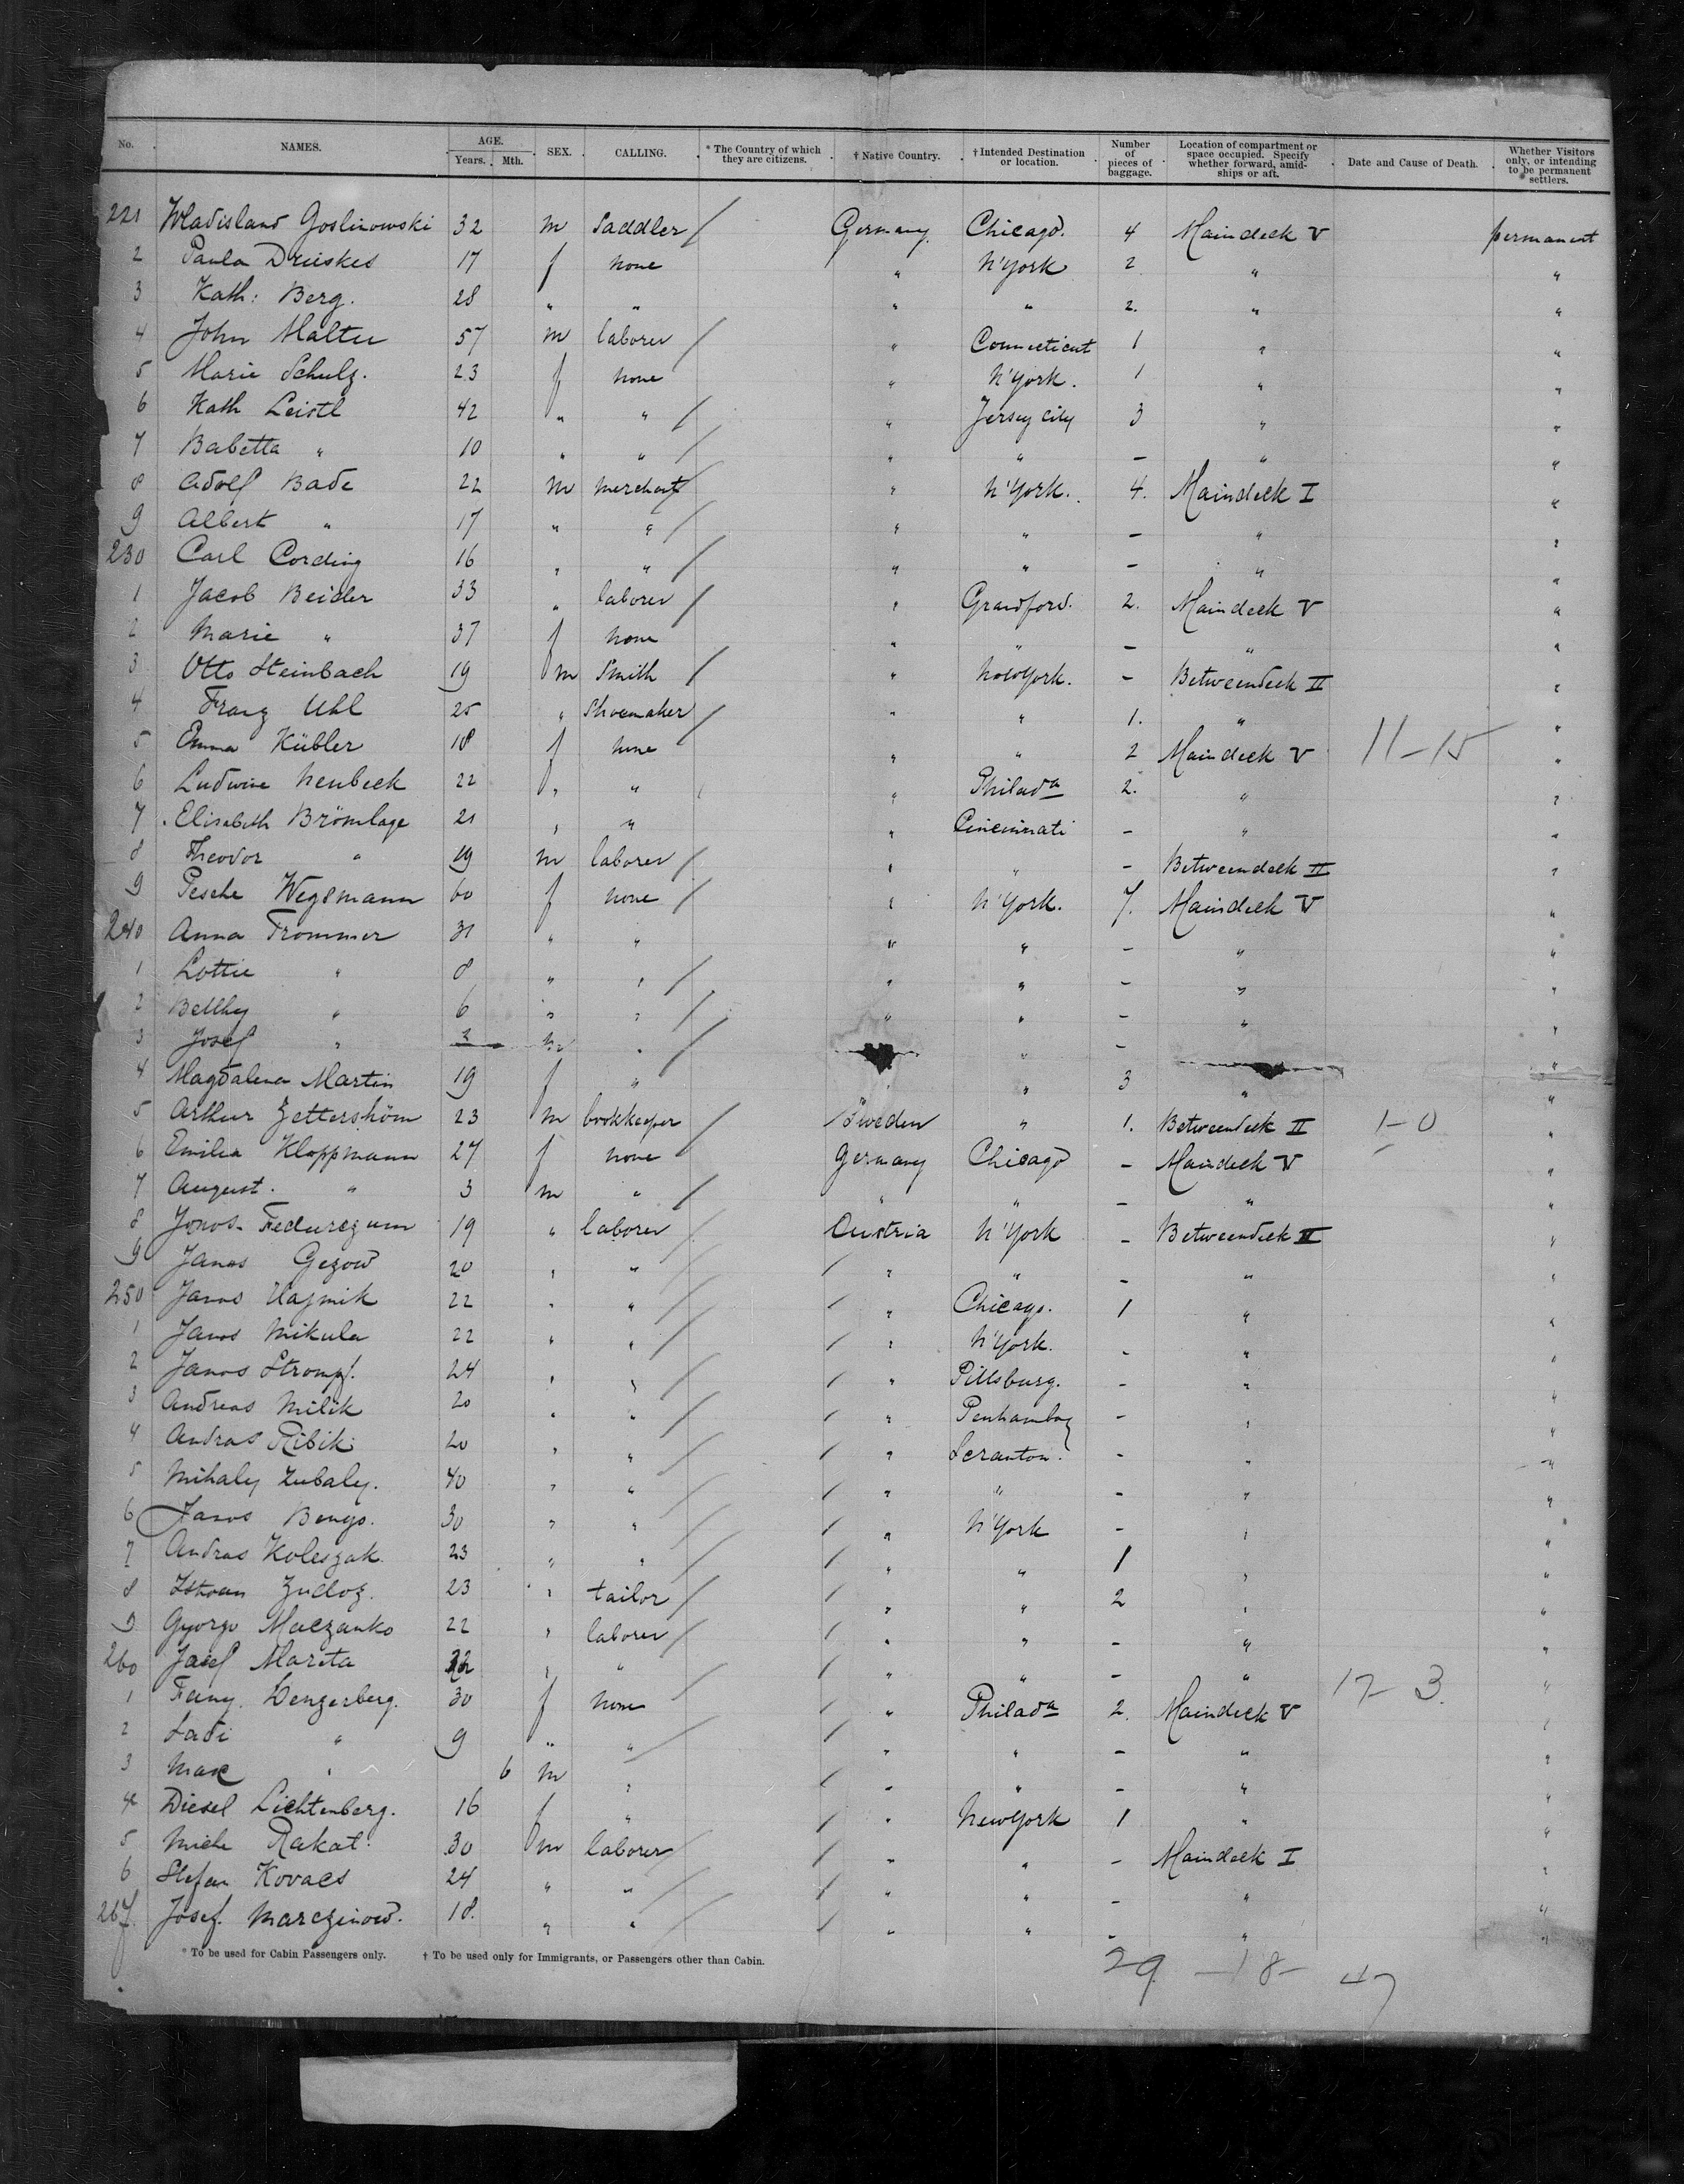 No. NAMES. AGE. Years. Mth. SEX. CALLING. * The Country of which they are citizens. † Native Country. † Intended Destination or location. Number of pieces of baggage. Location of compartment or space occupied. Specify whether forward, amidships or aft. Date and Cause of Death. Whether Visitors only, or intending to be permanent settlers.
221 Wladislaud Goslinowski 32 m Saddler / Germany. Chicago. 4 Maindeck V permanent
2 Paula Drieskes 17 f none " N'York 2 " "
3 Kath: Berg. 28 " " " " 2. " "
4 John Malter 57 m laborer / " Connecticut 1 " "
5 Marie Schulz. 23 f none " N'York. 1 " "
6 Kath Leistl 42 " " / " Jersey City 3 " "
7 Babetta " 10 " " / " " – " "
8 Adolf Bade 22 m merchant / " N'York. 4. Maindeck I "
9 Albert " 17 " " / " " – " "
230 Carl Cording 16 " " / " " – " "
1 Jacob Beider 33 " laborer / " Grandford. 2. Maindeck V "
2 Marie " 37 f none " " – " "
3 Otto Steinbach 19 m Smith / " NewYork. – Betweendeck II "
4 Franz Uhl 25 " Shoemaker / " " 1. " "
5 Emma Kübler 18 f none " " 2 Maindeck V 11–15 "
6 Ludwine Neubeck 22 " " " Philada 2. " "
7 Elisabeth Brömlage 21 " " " Cincinnati – " "
8 Theodor " 19 m laborer / " " – Betweendeck II "
9 Pesche Wegsmann 60 f none / " N'York. 7. Maindeck V "
240 Anna Trommer 31 " " " " – " "
1 Lottie " 8 " " / " " – " "
2 Betthy " 6 " " / " " – " "
3 Josef " 3 m " / " – "
4 Magdalena Martin 19 f " " " 3 " "
5 Arthur Zetterström 23 m bookkeeper / Sweden " 1. Betweendeck II 1–0 "
6 Emilia Kloppmann 27 f none Germany Chicago – Maindeck V "
7 August. " 3 m " / " " – " "
8 Jonos Fedurczum 19 " laborer / Austria N'York – Betweendeck II "
9 Janos Gezow 20 " " / / " " – " "
250 Janos Hajnik 22 " " / / " Chicago. 1 " "
1 Janos Mikula 22 " " / / " N'York. – " "
2 Janos Strompf. 24 " " / / " Pittsburg. – " "
3 Andreas Milik 20 " " / / " – " "
4 Andras Ribik 20 " " / / " Scranton. – " "
5 Mihaly Zubaly. 40 " " / / " " – " "
6 Janos Bengo. 30 " " / / " N'York – " "
7 Andras Koleszak 23 " " / / " " 1 " "
8 Istvan Zudoz. 23 " tailor / / " " 2 " "
9 György Maczanko 22 " laborer / / " " – " "
260 Josef Mareta 22 " " / / " " – " 17–3. "
1 Feiny. Dengerberg. 30 f none / " Philada 2. Maindeck V "
2 Sadi " 9 " " / / " " – " "
3 Max " 6 m " / " " – " "
4 Diesel Lichtenberg. 16 f " / " NewYork 1 " "
5 Miele Rakat. 30 m laborer / / " " – Maindeck I "
6 Stefan Kovacs 24 " " / / " " – " "
267. Josef. Marczinow. 18. " " / / " " – " "
* To be used for Cabin Passengers only. † To be used only for Immigrants, or Passengers other than Cabin.
29 –18– 47